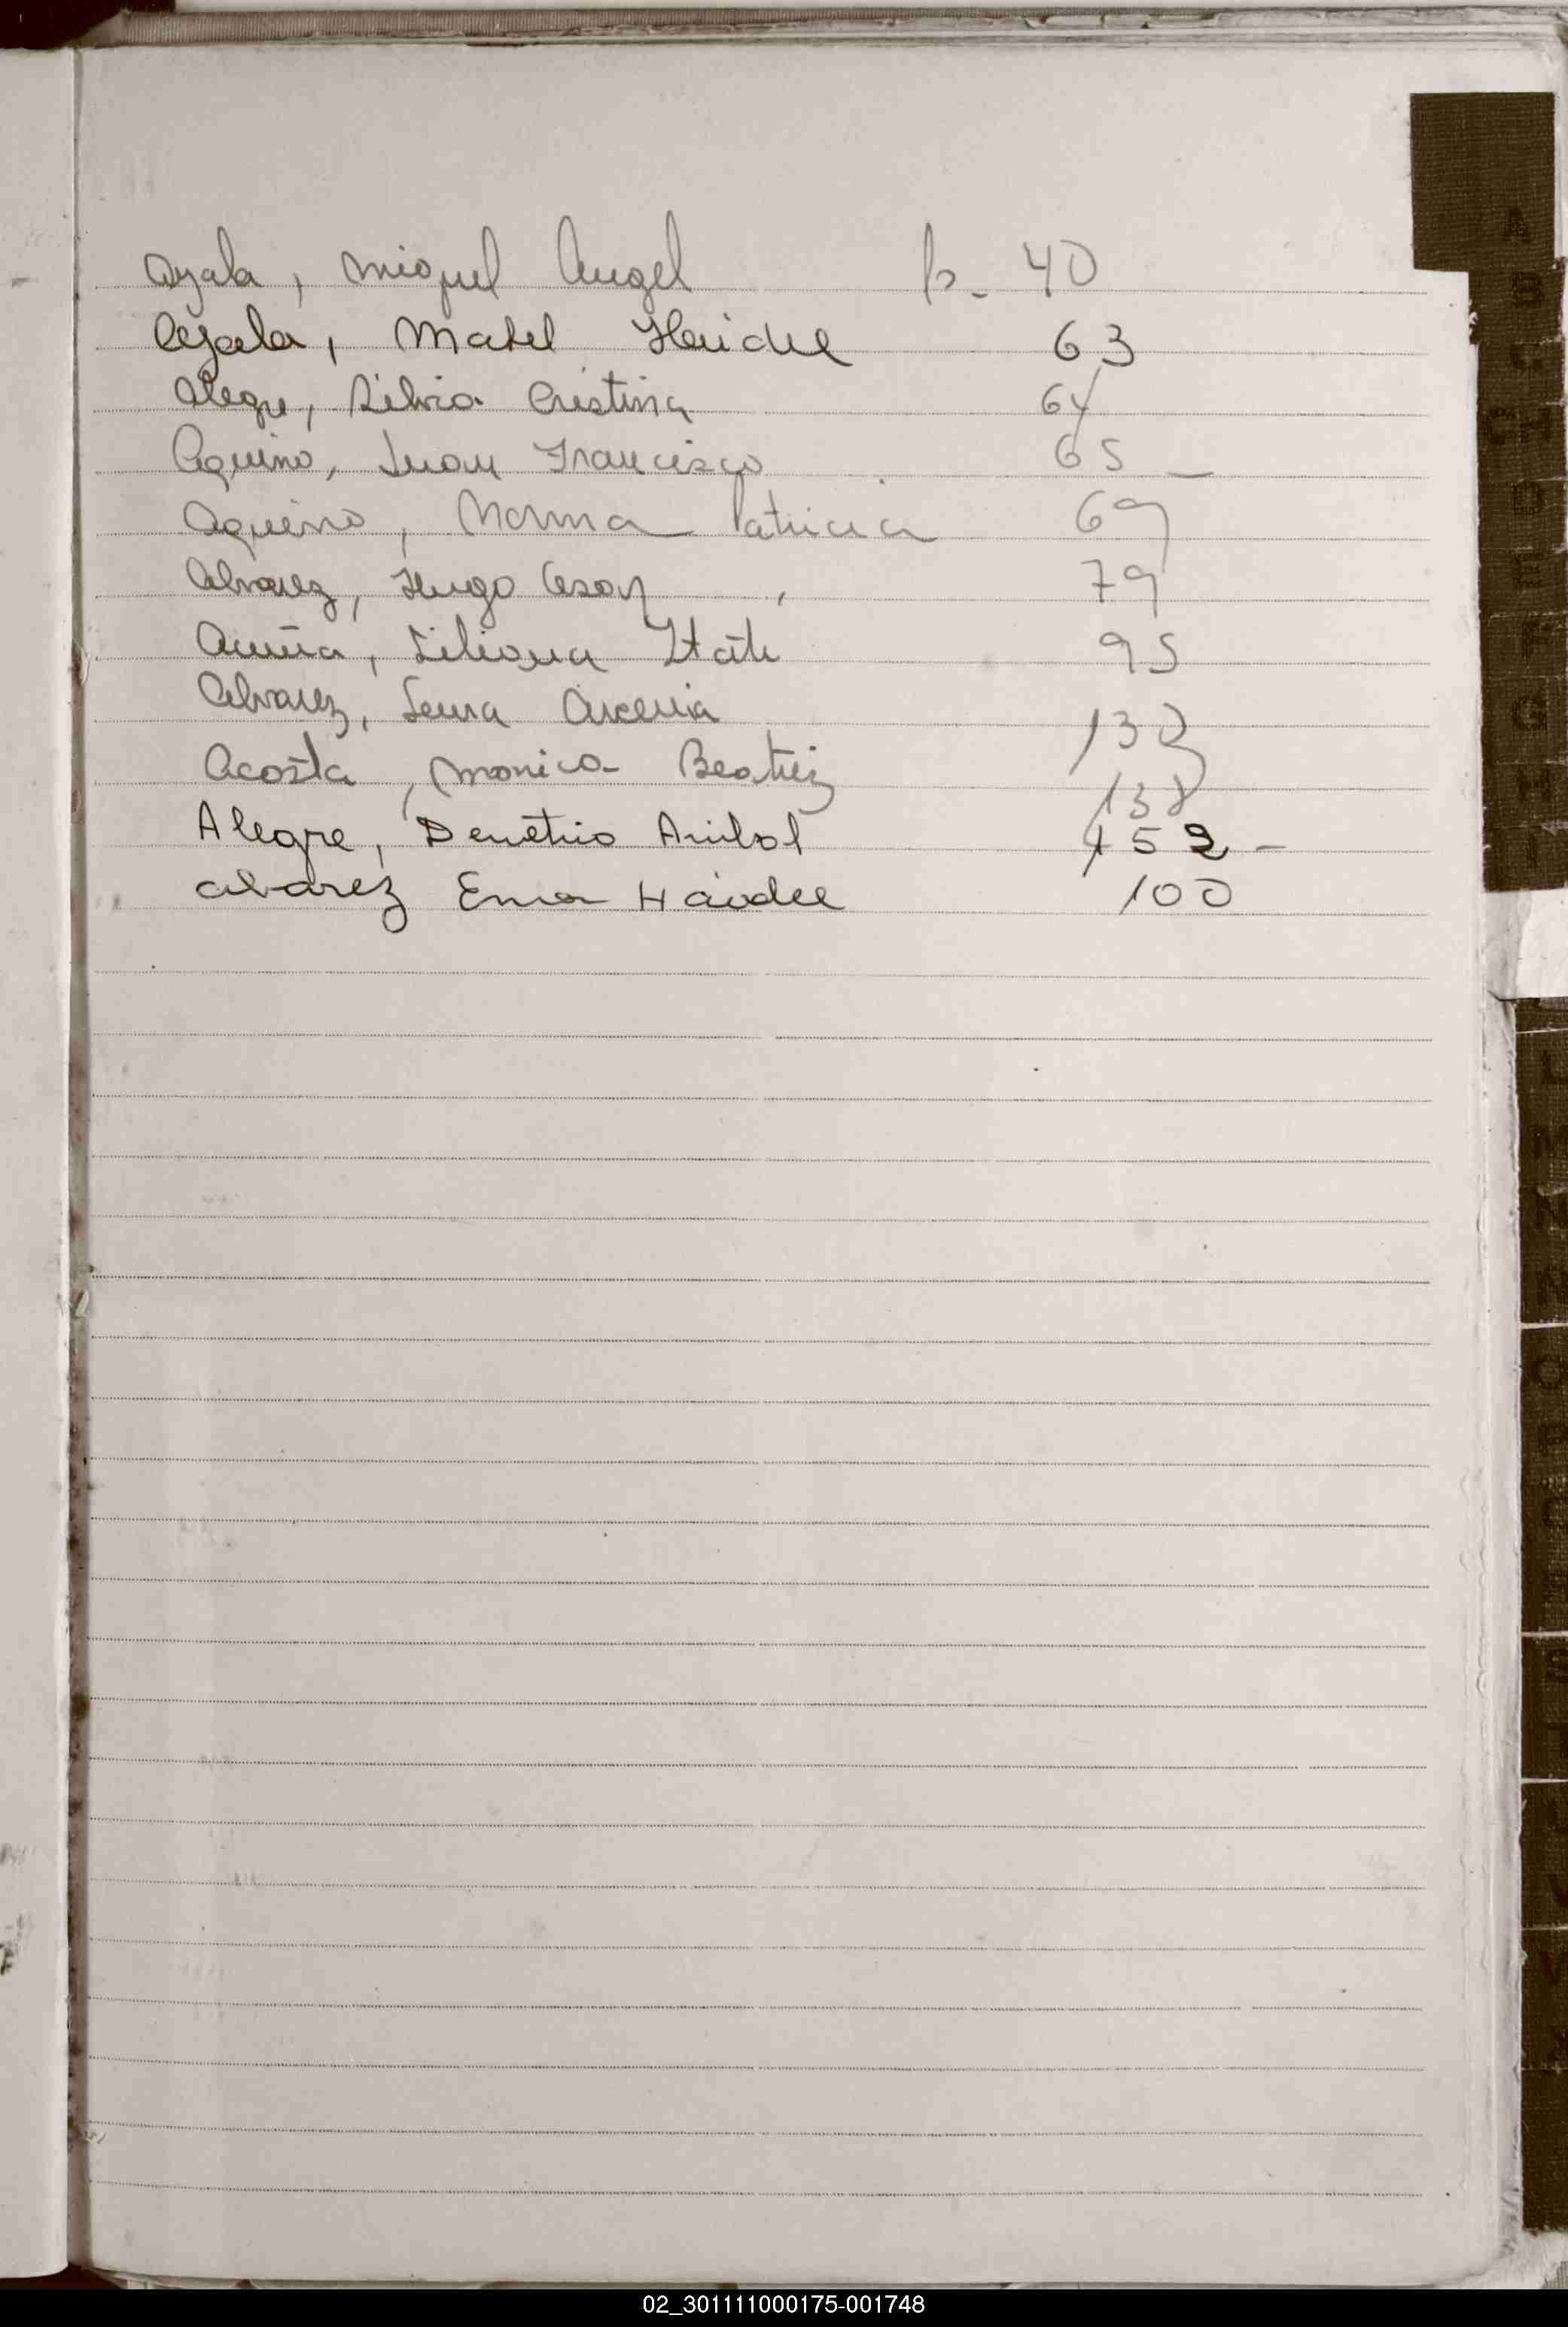 Ayala, Miguel Angel p. 40
Ayala, Mabel Haidee 63
Alegre, Silvia Cristina 64
Aquino, Juan Francisco 65 -
Aquino, Norma Patricia 69
Alvarez, Hugo Cesar 79
Acuña, Liliana Itatí 95
Alvarez, Arcenia
Acosta, Monica Beatriz 138
Alegre, Demetrio Anibal 152 -
Alvarez Ema Haidee 100
A
B
C
D
E
F
G
02_301111000175-001748